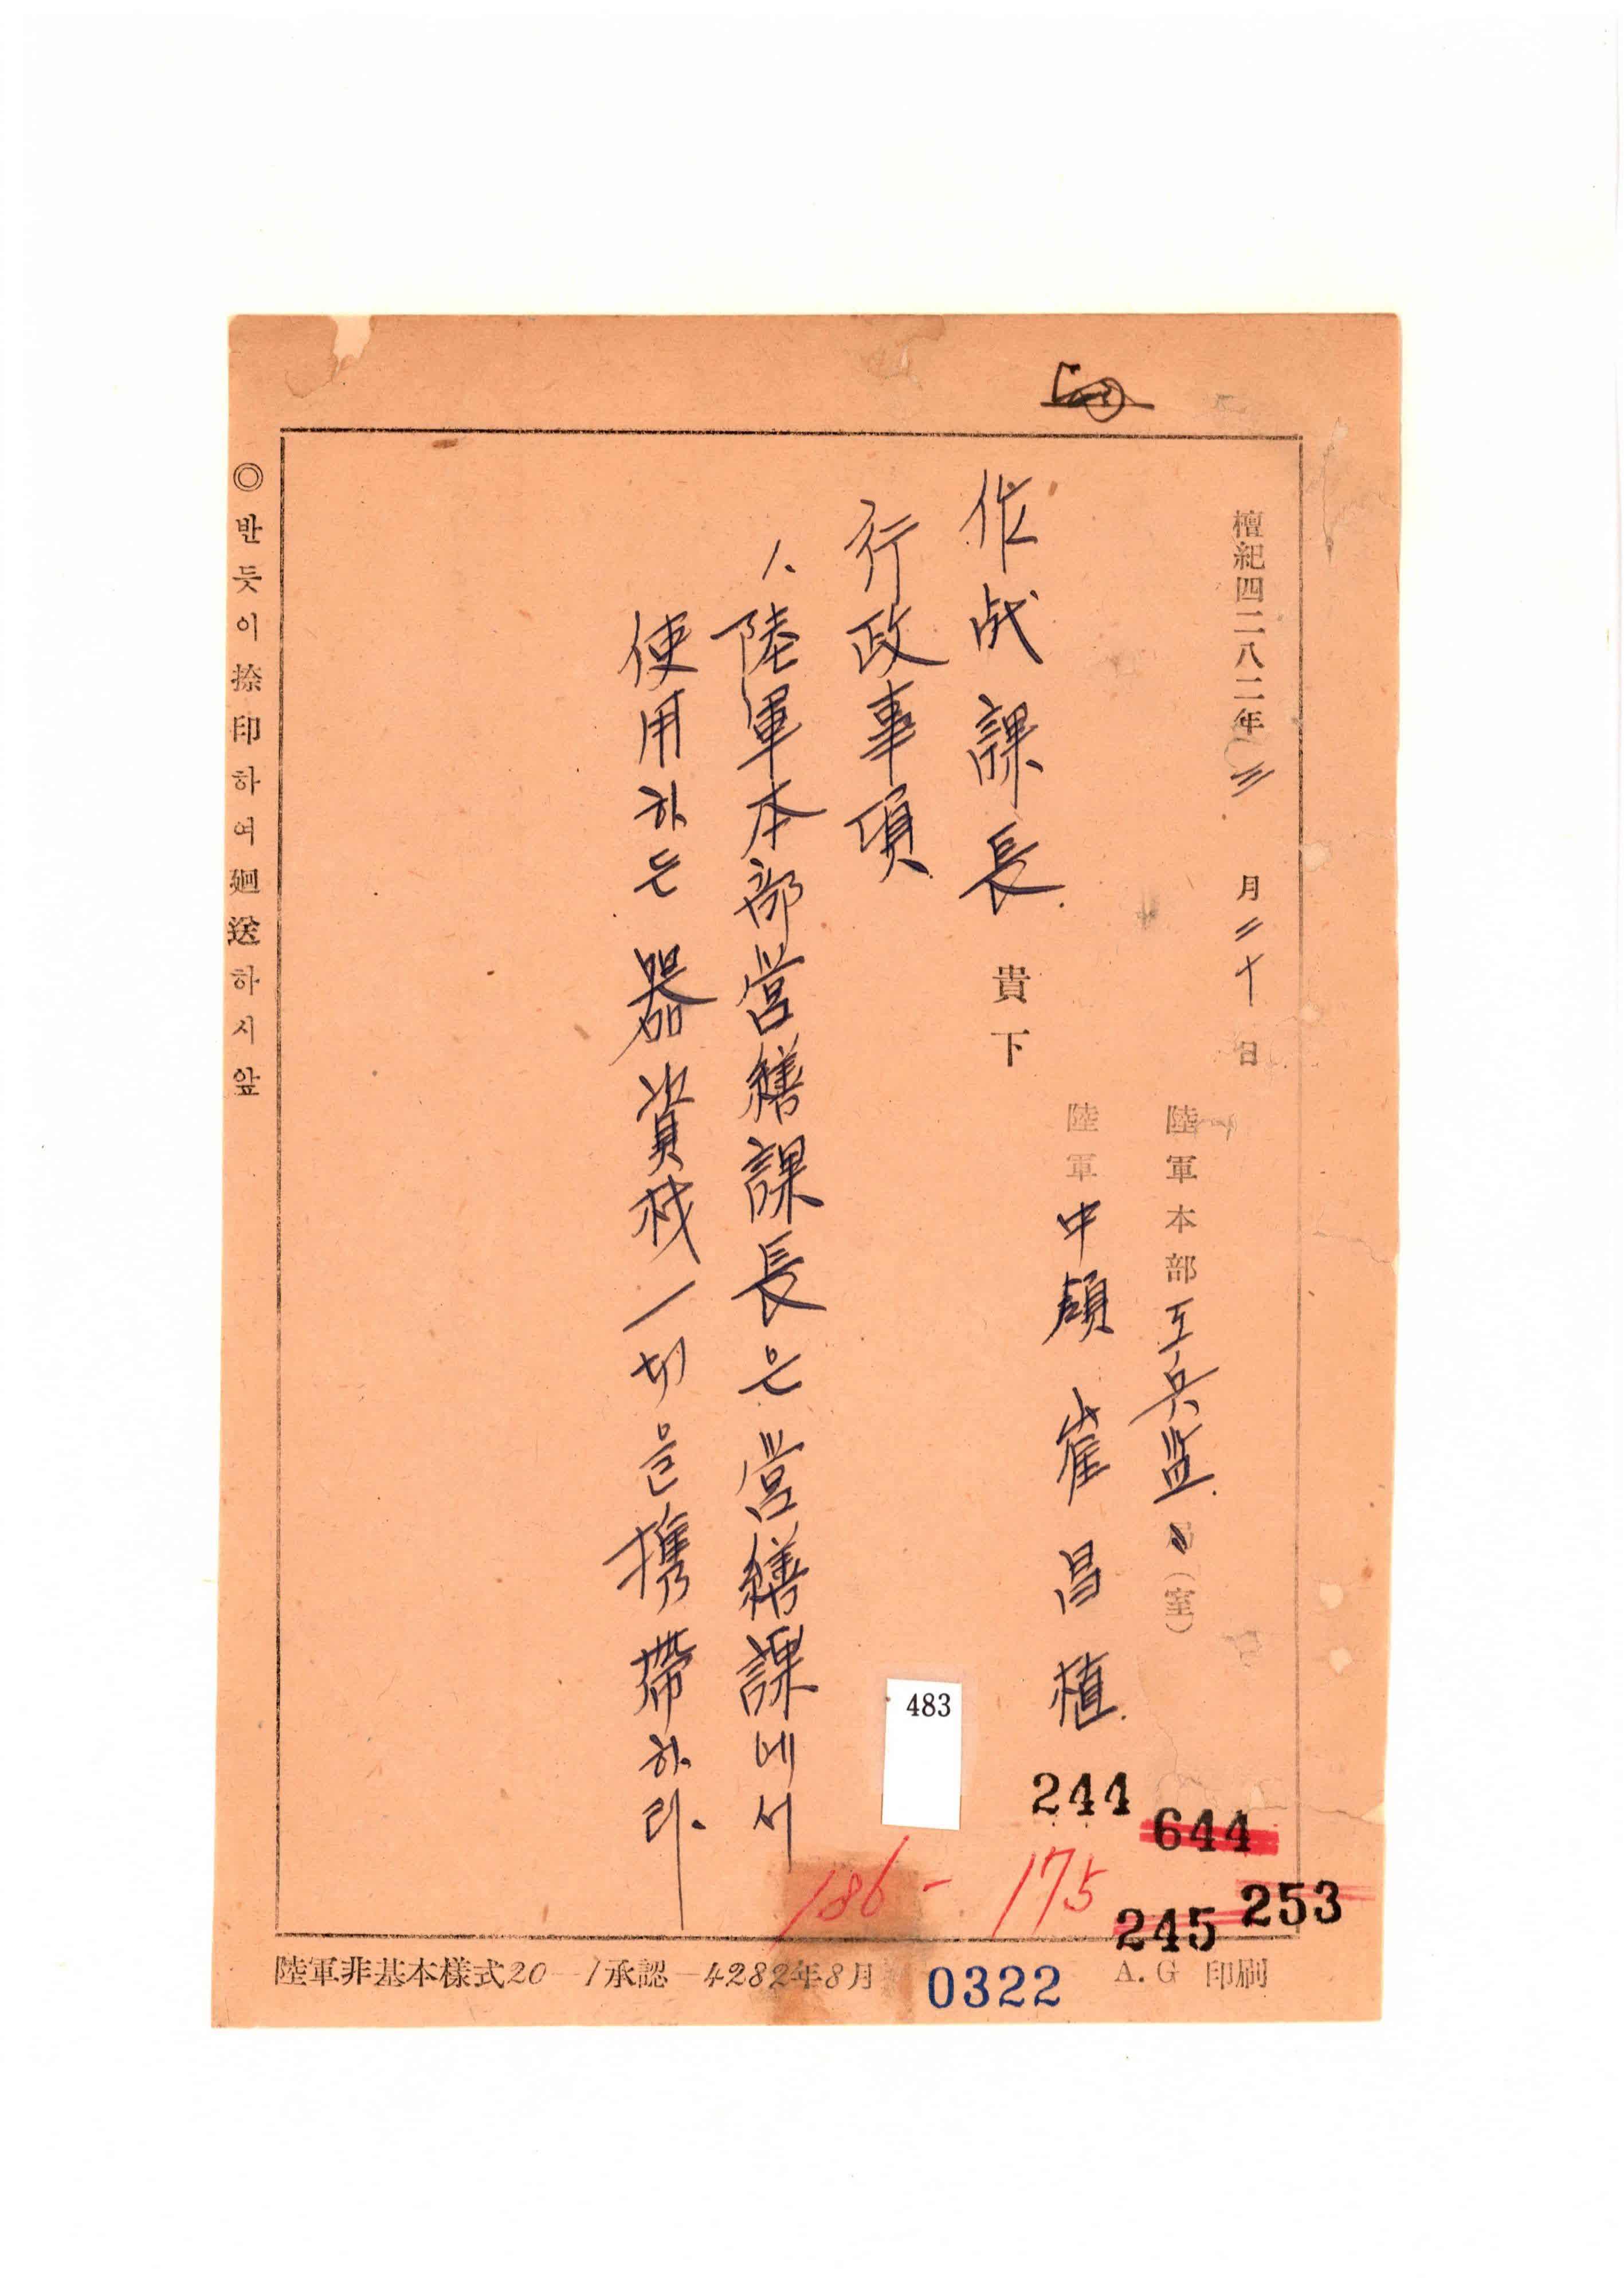 檀紀四二八二年三月二十日
陸軍本部工兵監局(室)
陸軍中領 崔昌植
作战課長 貴下
行政事項
1. 陸軍本部営繕課長은 営繕課에서
使用하는 器資材一切을 携帶하라.
◎반듯이捺印하여廻送하시앞
483
244
644
186-175
245
253
陸軍非基本樣式20-1承認-4282年8月
0322
A.G 印刷